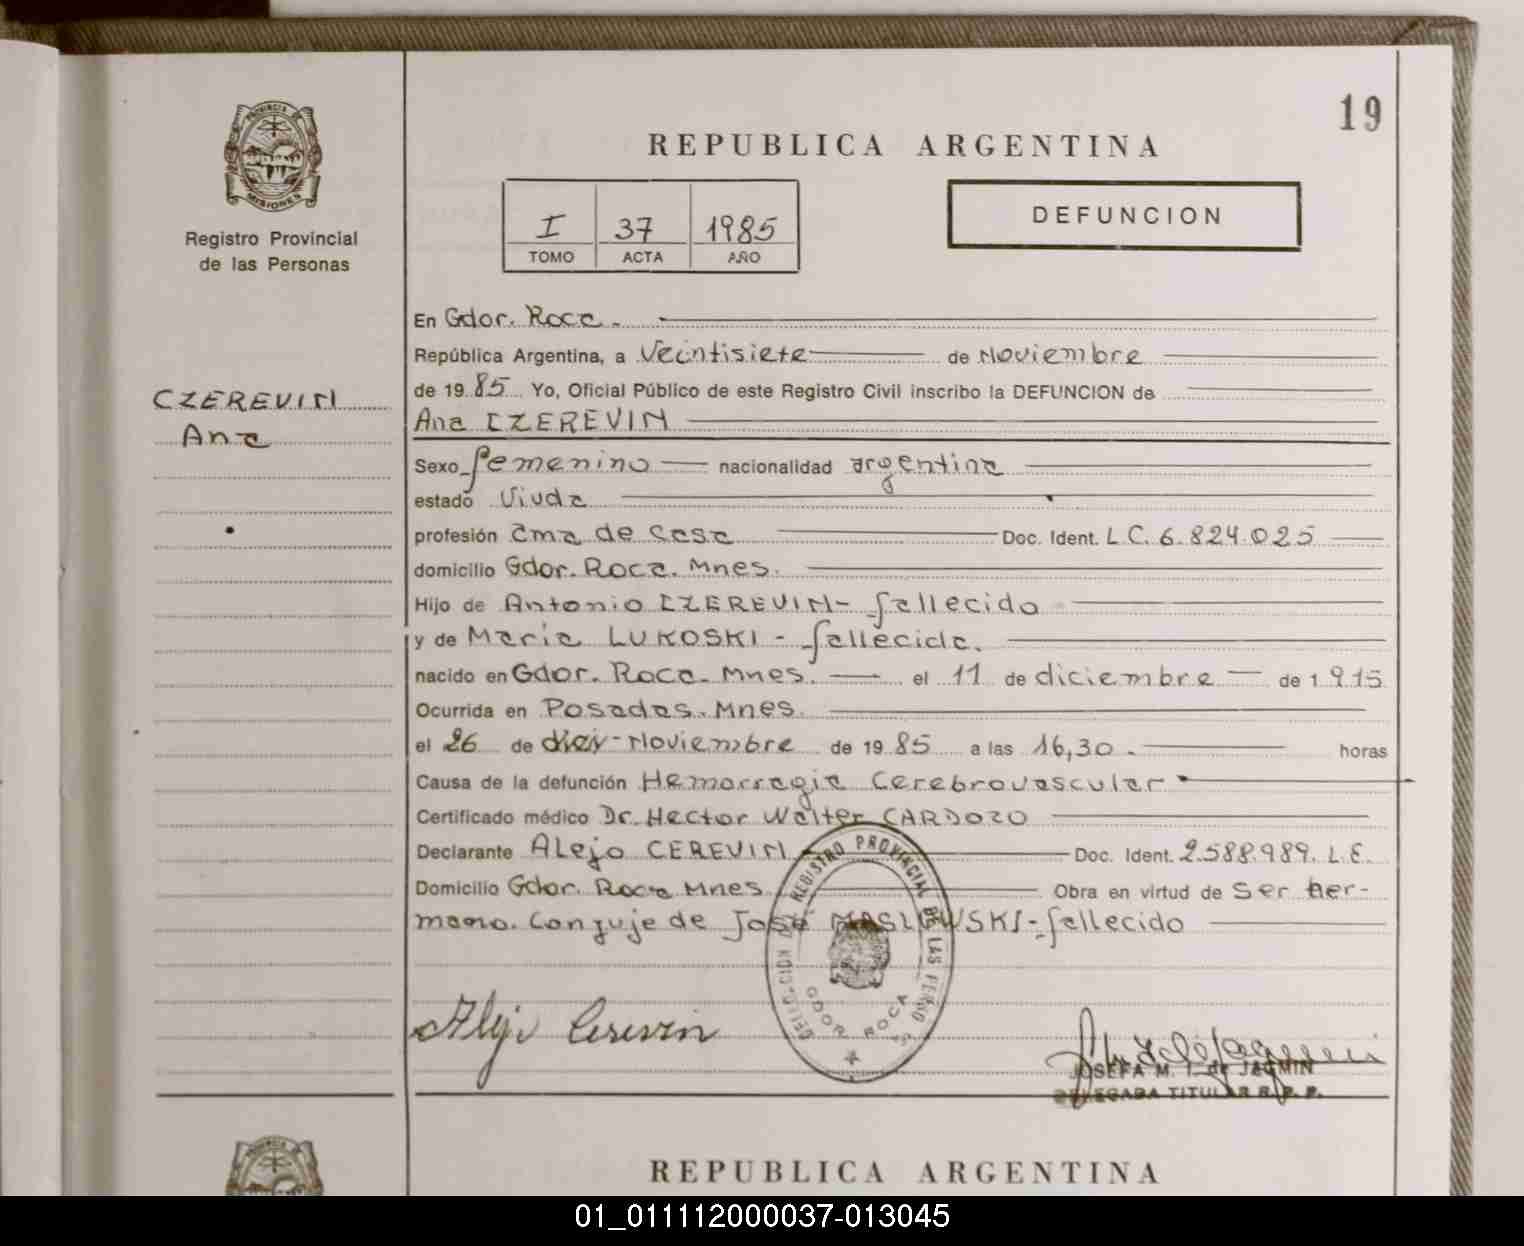 19
PROVINCIA DE
MISIONES
Registro Provincial
de las Personas
REPUBLICA ARGENTINA
I 37 1985
TOMO ACTA AÑO
DEFUNCION
CZEREVIN
Ana
En Gdor. Roca.
República Argentina, a Veintisiete de Noviembre
de 19 85 Yo, Oficial Público de este Registro Civil inscribo la DEFUNCION de
Ana CZEREVIN
Sexo femenino nacionalidad argentina
estado Viuda
profesión ama de casa Doc. Ident. L.C. 6.824.025
domicilio Gdor. Roca. Mnes.
Hijo de Antonio CZEREVIN- fallecido
y de Maria LUKOSKI - fallecida.
nacido en Gdor. Roca. Mnes. el 11 de diciembre de 1 915
Ocurrida en Posadas. Mnes.
el 26 de - Noviembre de 19 85 a las 16,30. horas
Causa de la defunción Hemorragia Cerebrovascular
Certificado médico Dr. Hector Walter CARDOZO
Declarante Alejo CEREVIN Doc. Ident. 2.588.989. L.E.
Domicilio Gdor. Roca Mnes. Obra en virtud de ser her-
mano. Conyuje de José MASLOWSKI - fallecido
REGISTRO PROVINCIAL DE LAS
GDOR ROCA
Alejo Cerevin
JOSEFA M. I. de JAGMIN
DELEGADA TITULAR R. P. P.
PROVINCIA DE
REPUBLICA ARGENTINA
01_011112000037-013045